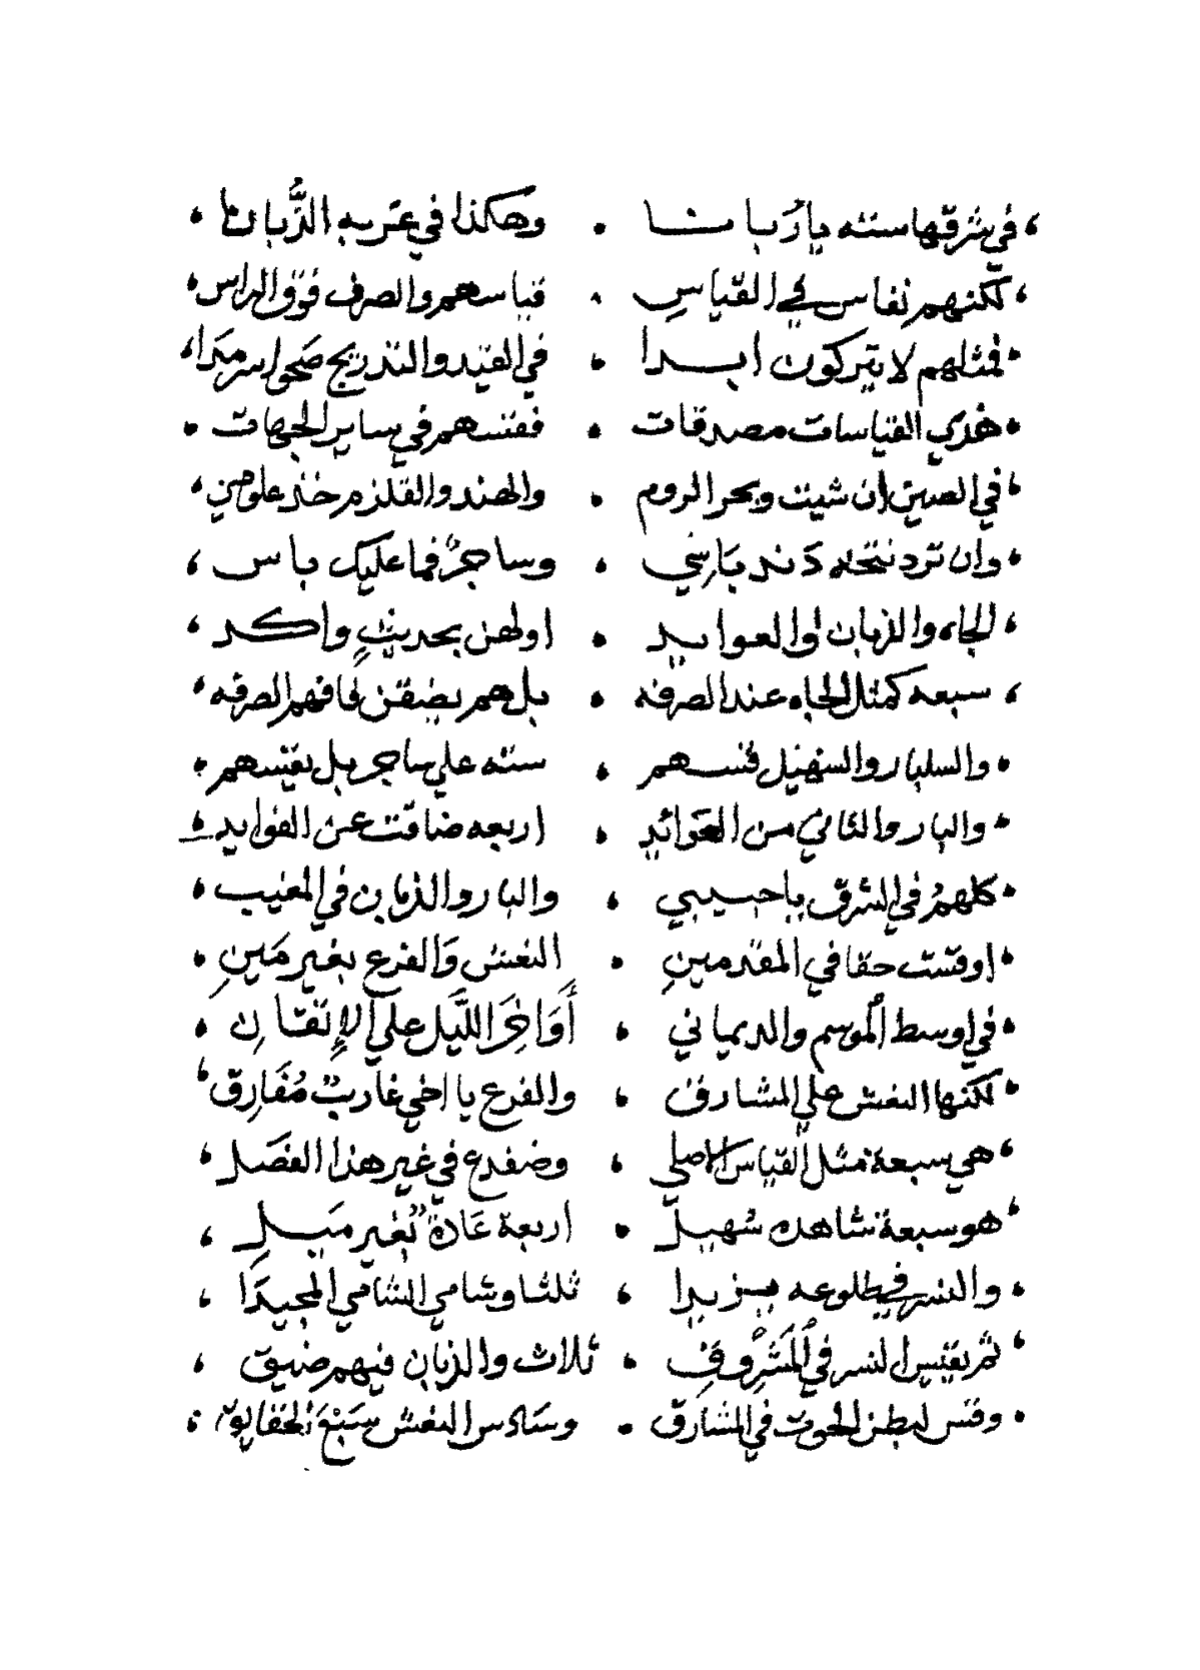 في شرقها سته يا ربانا • وهكذا في غربه الزبانا
لكنهم نفاس في القياس • قياسهم والصرف فوق الراس
فمثلهم لا يتركون ابدا • في القيد والتدريج صحوا سرمدا
هذي القياسات مصدقات • فقسهم في ساير الجهات
في الصين ان شيت وبحر الروم • والهند والقلزم خذ علومي
وان ترد نتخه دند باسي • وساجر فما عليك باس
الجاه والزبان اوالعوايد • اولهن بحديث واكد
سبعه كمثل الجاه عند الصرفه • بل هم يضيقن فافهم الصرفه
والسلبار والسهيل قسهم • سته علي ساجر بل نفيسهم
والبار والثاني من العوائد • اربعه ضاقت عن الفوايد
كلهم في الشرق يا حبيبي • والبار والذبان في المغيب
اوقست حقا في المقدمين • النعش والفرع بغير مين
في اوسط الموسم والديماني • أواخر الليل علي الإتقان
لكنها النعش علي المشارق • والفرع يا اخي غارب مفارق
هي سبعة مثل القياس الاصلي • وضفدع في غير هذا الفصل
هو سبعة شاهد سهيل • اربعة عادة بغير ميل
والنسر في طلوعه يزيدا • ثلثا وشامي الشامي المجيدا
ثم يقيس النسر في المشروق • ثلاث والزبان فيهم ضيق
وقس لبطن الحوت في المشارق • وسادس النعش سبع